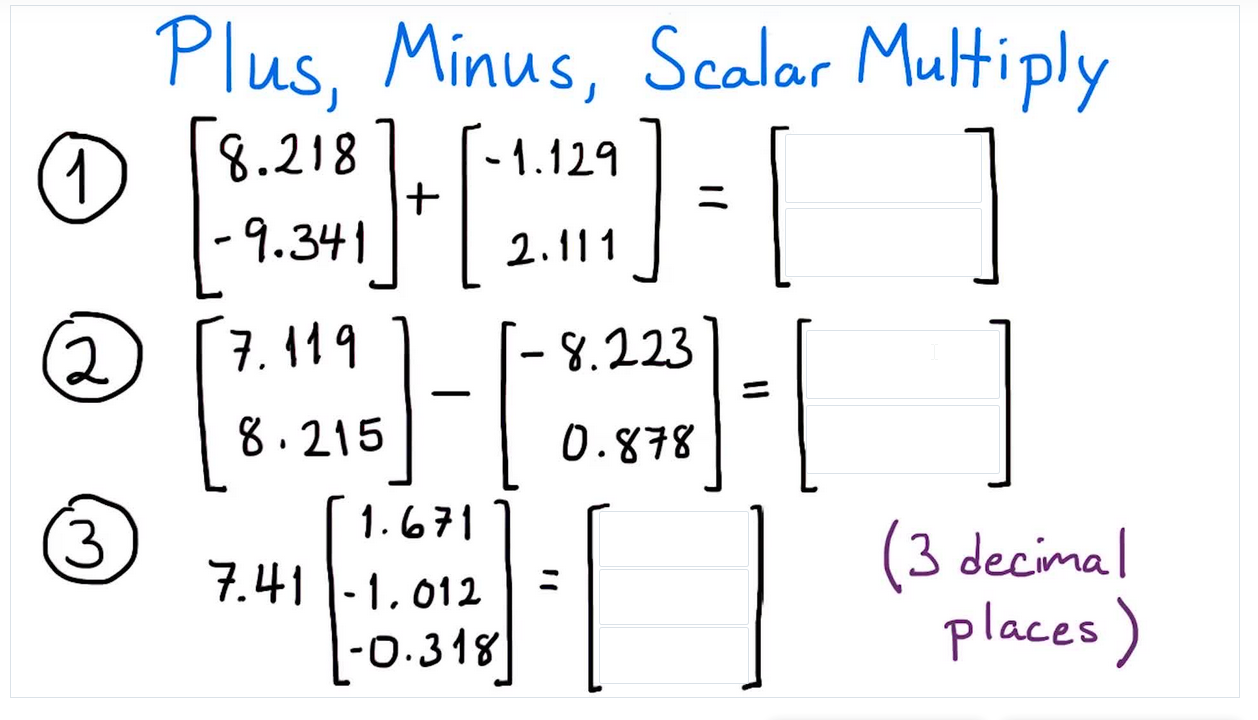 Plus, Minus, Scalar Multiply
① [8.218 -9.341] + [-1.129 2.111] = [ ]
② [7.119 8.215] - [-8.223 0.878] = [ ]
③ 7.41 [1.671 -1.012 -0.318] = [ ]
(3 decimal
places)